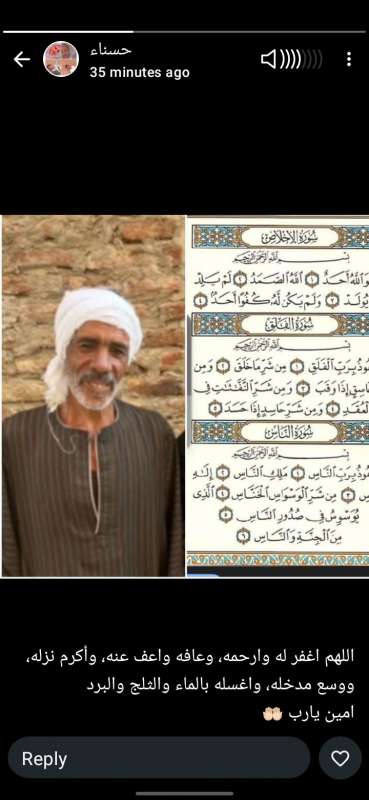 حسناء
35 minutes ago
سُورَةُ الإِخْلَاصِ
بِسْمِ اللَّهِ الرَّحْمَٰنِ الرَّحِيمِ
هُوَ اللَّهُ أَحَدٌ ١ اللَّهُ الصَّمَدُ ٢ لَمْ يَلِدْ
يُولَدْ ٣ وَلَمْ يَكُن لَّهُ كُفُوًا أَحَدٌ ٤
سُورَةُ الْفَلَقِ
بِسْمِ اللَّهِ الرَّحْمَٰنِ الرَّحِيمِ
عُوذُ بِرَبِّ الْفَلَقِ ١ مِن شَرِّ مَا خَلَقَ ٢ وَمِن
اسِقٍ إِذَا وَقَبَ ٣ وَمِن شَرِّ النَّفَّٰثَٰتِ فِي
الْعُقَدِ ٤ وَمِن شَرِّ حَاسِدٍ إِذَا حَسَدَ ٥
سُورَةُ النَّاسِ
بِسْمِ اللَّهِ الرَّحْمَٰنِ الرَّحِيمِ
عُوذُ بِرَبِّ النَّاسِ ١ مَلِكِ النَّاسِ ٢ إِلَٰهِ
سِ ٣ مِن شَرِّ الْوَسْوَاسِ الْخَنَّاسِ ٤ الَّذِي
يُوَسْوِسُ فِي صُدُورِ النَّاسِ ٥
مِنَ الْجِنَّةِ وَالنَّاسِ ٦
اللهم اغفر له وارحمه، وعافه واعف عنه، وأكرم نزله،
ووسع مدخله، واغسله بالماء والثلج والبرد
امين يارب 🤲🏻
Reply